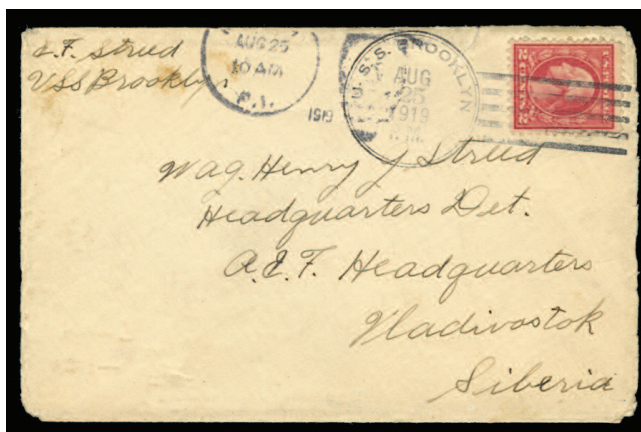 L.F. Streed
USS Brooklyn
AUG 25
10 AM
P.I.
1919
U.S.S. BROOKLYN
AUG
25
1919
Wag. Henry J Streed
Headquarters Det.
A.E.F. Headquarters
Vladivostok
Siberia